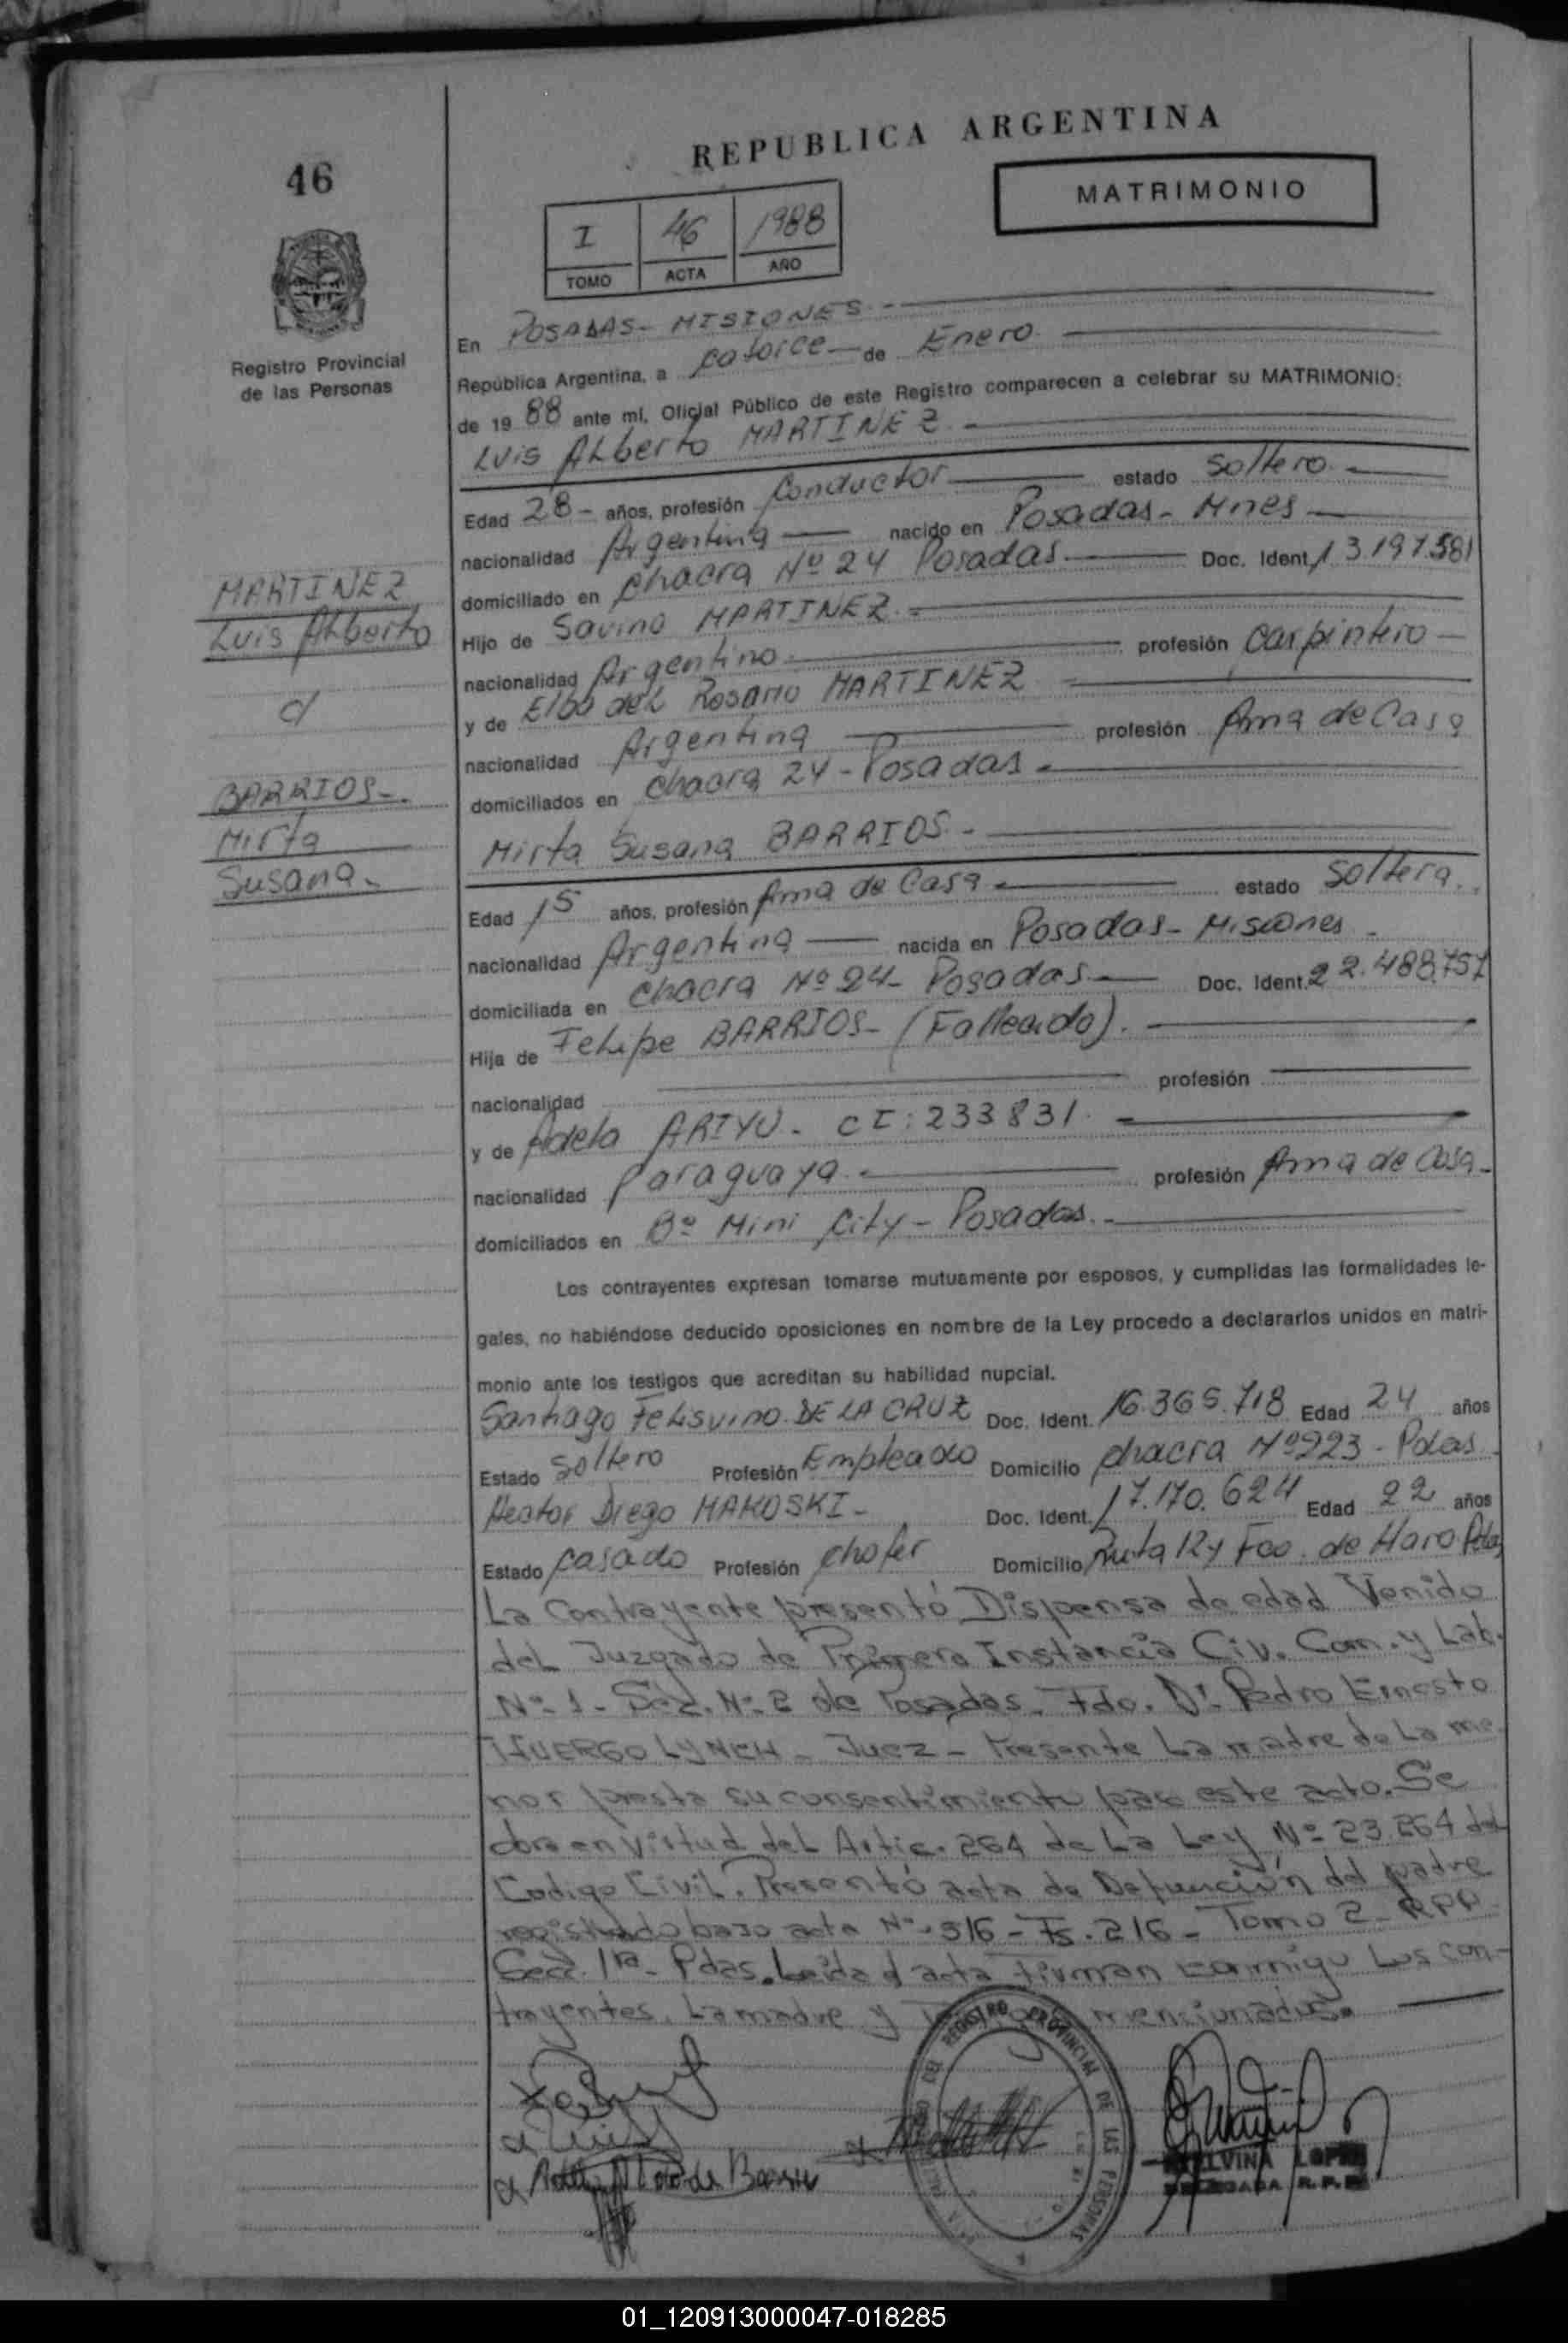 REPUBLICA ARGENTINA
46
MATRIMONIO
I 46 1988
TOMO ACTA AÑO
Registro Provincial
de las Personas
En POSADAS - MISIONES
República Argentina, a catorce de Enero
de 1988 ante mí, Oficial Público de este Registro comparecen a celebrar su MATRIMONIO:
Luis Alberto MARTINEZ
Edad 28 - años, profesión Conductor estado Soltero
nacionalidad Argentina nacido en Posadas - Mnes
domiciliado en chacra Nº 24 Posadas Doc. Ident. 13.197.581
MARTINEZ
Luis Alberto
c/
BARRIOS -
Mirta
Susana -
Hijo de Savino MARTINEZ
nacionalidad Argentino profesión carpintero
y de Elba del Rosario MARTINEZ
nacionalidad Argentina profesión Ama de Casa
domiciliados en chacra 24 - Posadas
Mirta Susana BARRIOS
Edad 15 años, profesión Ama de Casa estado Soltera
nacionalidad Argentina nacida en Posadas - Misiones
domiciliada en chacra Nº 24 - Posadas Doc. Ident. 22.488.757
Hija de Felipe BARRIOS - (Fallecido).
nacionalidad profesión
y de Adela ARIYU - CI: 233831
nacionalidad Paraguaya profesión Ama de Casa -
domiciliados en Bº Mini City - Posadas
Los contrayentes expresan tomarse mutuamente por esposos, y cumplidas las formalidades le-
gales, no habiéndose deducido oposiciones en nombre de la Ley procedo a declararlos unidos en matri-
monio ante los testigos que acreditan su habilidad nupcial.
Santiago Felisvino DE LA CRUZ Doc. Ident. 16.365.718 Edad 24 años
Estado Soltero Profesión Empleado Domicilio chacra Nº 223 - Pdas
Hector Diego MAKOSKI - Doc. Ident. 17.170.624 Edad 22 años
Estado casado Profesión chofer Domicilio Ruta 12 y Fco. de Haro Pdas
La Contrayente presentó Dispensa de edad Venido
del Juzgado de Primera Instancia Civ. Com. y Lab.
Nº 1 - Sec. Nº 2 de Posadas - Fdo. Dr. Pedro Ernesto
LYNCH - Juez - Presente la madre de la me
nor presta su consentimiento para este acto. Se
obra en virtud del Artic. 264 de la Ley Nº 23.264 del
Codigo Civil. Presentó acta de Defunción del padre
registrado bajo acta Nº 516 - Fs. 216 - Tomo 2 - RPP
Secc. 1ra - Pdas. Leída el acta firman conmigo los con-
trayentes, la madre y mencionados.
DEL REGISTRO PROVINCIAL DE LAS PERSONAS
de Barrio
LOPEZ
DELEGADA R.P.P.
01_120913000047-018285